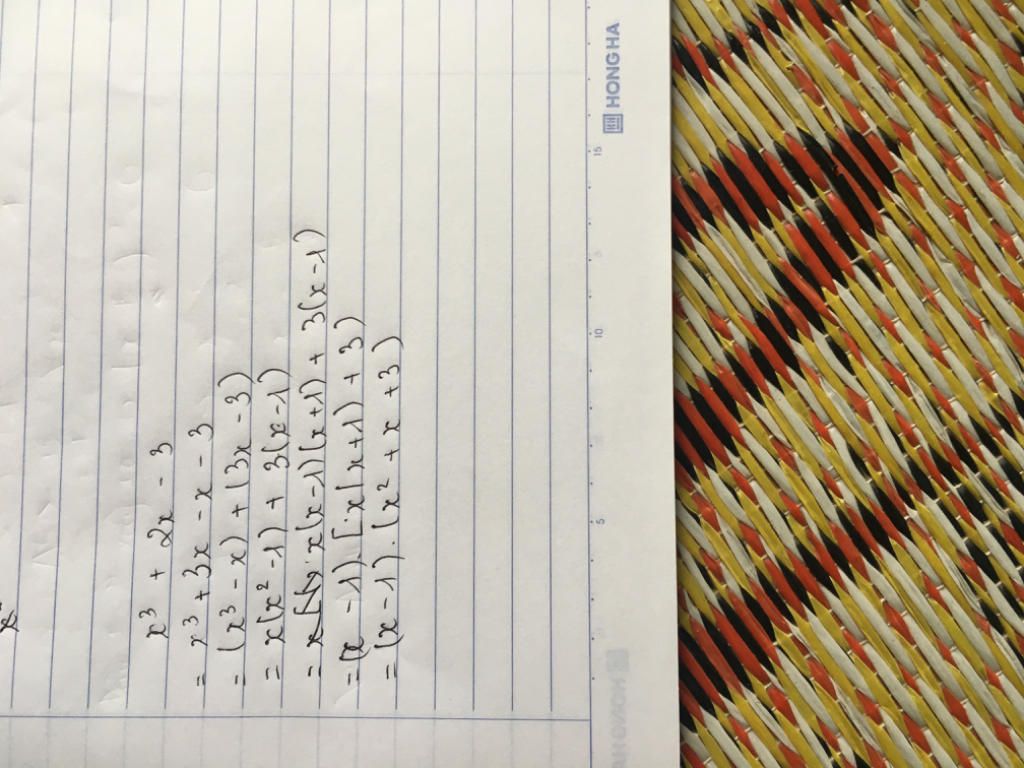 x³ + 2x - 3
= x³ + 3x - x - 3
= (x³ - x) + (3x - 3)
= x(x² - 1) + 3(x - 1)
= x(x - 1)(x + 1) + 3(x - 1)
= (x - 1).[x(x + 1) + 3)
= (x - 1).(x² + x + 3)
5
10
15
HONG HA